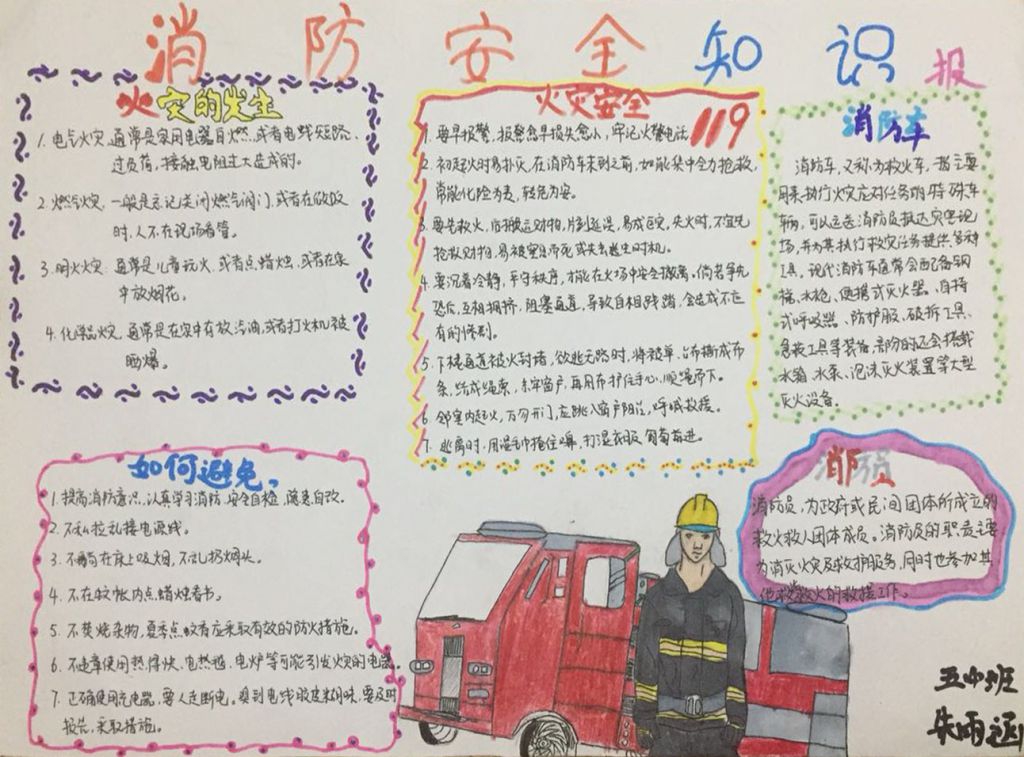 消防安全知识报
火灾的发生
1. 电气火灾,通常是家用电器自燃,或者电线短路、
过负荷,接触电阻过大造成的。
2. 燃气火灾,一般是忘记关闭燃气阀门,或者在做饭
时,人不在现场看管。
3. 明火火灾:通常是儿童玩火,或者点蜡烛,或者在家
中放烟花。
4. 化学品火灾,通常是在家中存放汽油,或者打火机被
晒爆。
火灾安全
1. 要早报警,报警愈早损失愈小,牢记火警电话119
2. 初起火时易扑灭,在消防车来到之前,如能集中全力抢救,
常能化险为夷,转危为安。
3. 要先救火,后搬运财物,片刻延误,易成巨灾,失火时,不宜先
抢救财物,易被窒息而死或失去逃生时机。
4. 要沉着冷静,严守秩序,才能在火场中安全撤离。倘若争先
恐后,互相拥挤,阻塞通道,导致自相践踏,会造成不应
有的惨剧。
5. 下楼通道被火封堵,欲逃无路时,将被单、台布撕成布
条,结成绳索,牢牢窗户,再用布护住手心,顺绳而下。
6. 邻室内起火,万勿开门,应跳入窗户阳台,呼喊救援。
7. 逃离时,用湿毛巾掩住口鼻,打湿衣服,匍匐前进。
消防车
消防车,又称为救火车,指主要
用来执行火灾应对任务的特殊车
辆,可以运送消防员抵达灾害现
场,并为其执行救灾任务提供多种
工具。现代消防车通常会配备钢
梯、水枪、便携式灭火器、自持
式呼吸器、防护服、破拆工具、
急救工具等装备,部分的还会搭载
水箱、水泵、泡沫灭火装置等大型
灭火设备。
如何避免?
1. 提高消防意识,认真学习消防,安全自检,隐患自改。
2. 不私拉乱接电源线。
3. 不躺在床上吸烟,不乱扔烟头。
4. 不在蚊帐内点蜡烛看书。
5. 不焚烧杂物,夏季点蚊香应采取有效的防火措施。
6. 不违章使用热得快、电热毯、电炉等可能引发火灾的电器。
7. 正确使用充电器,要人走断电。臭到电线胶皮糊味,要及时
报告,采取措施。
消防员
消防员,为政府或民间团体所成立的
救火救人团体成员。消防员的职责主要
为消灭火灾及救护服务,同时也参加其
他救火的救援工作。
朱雨